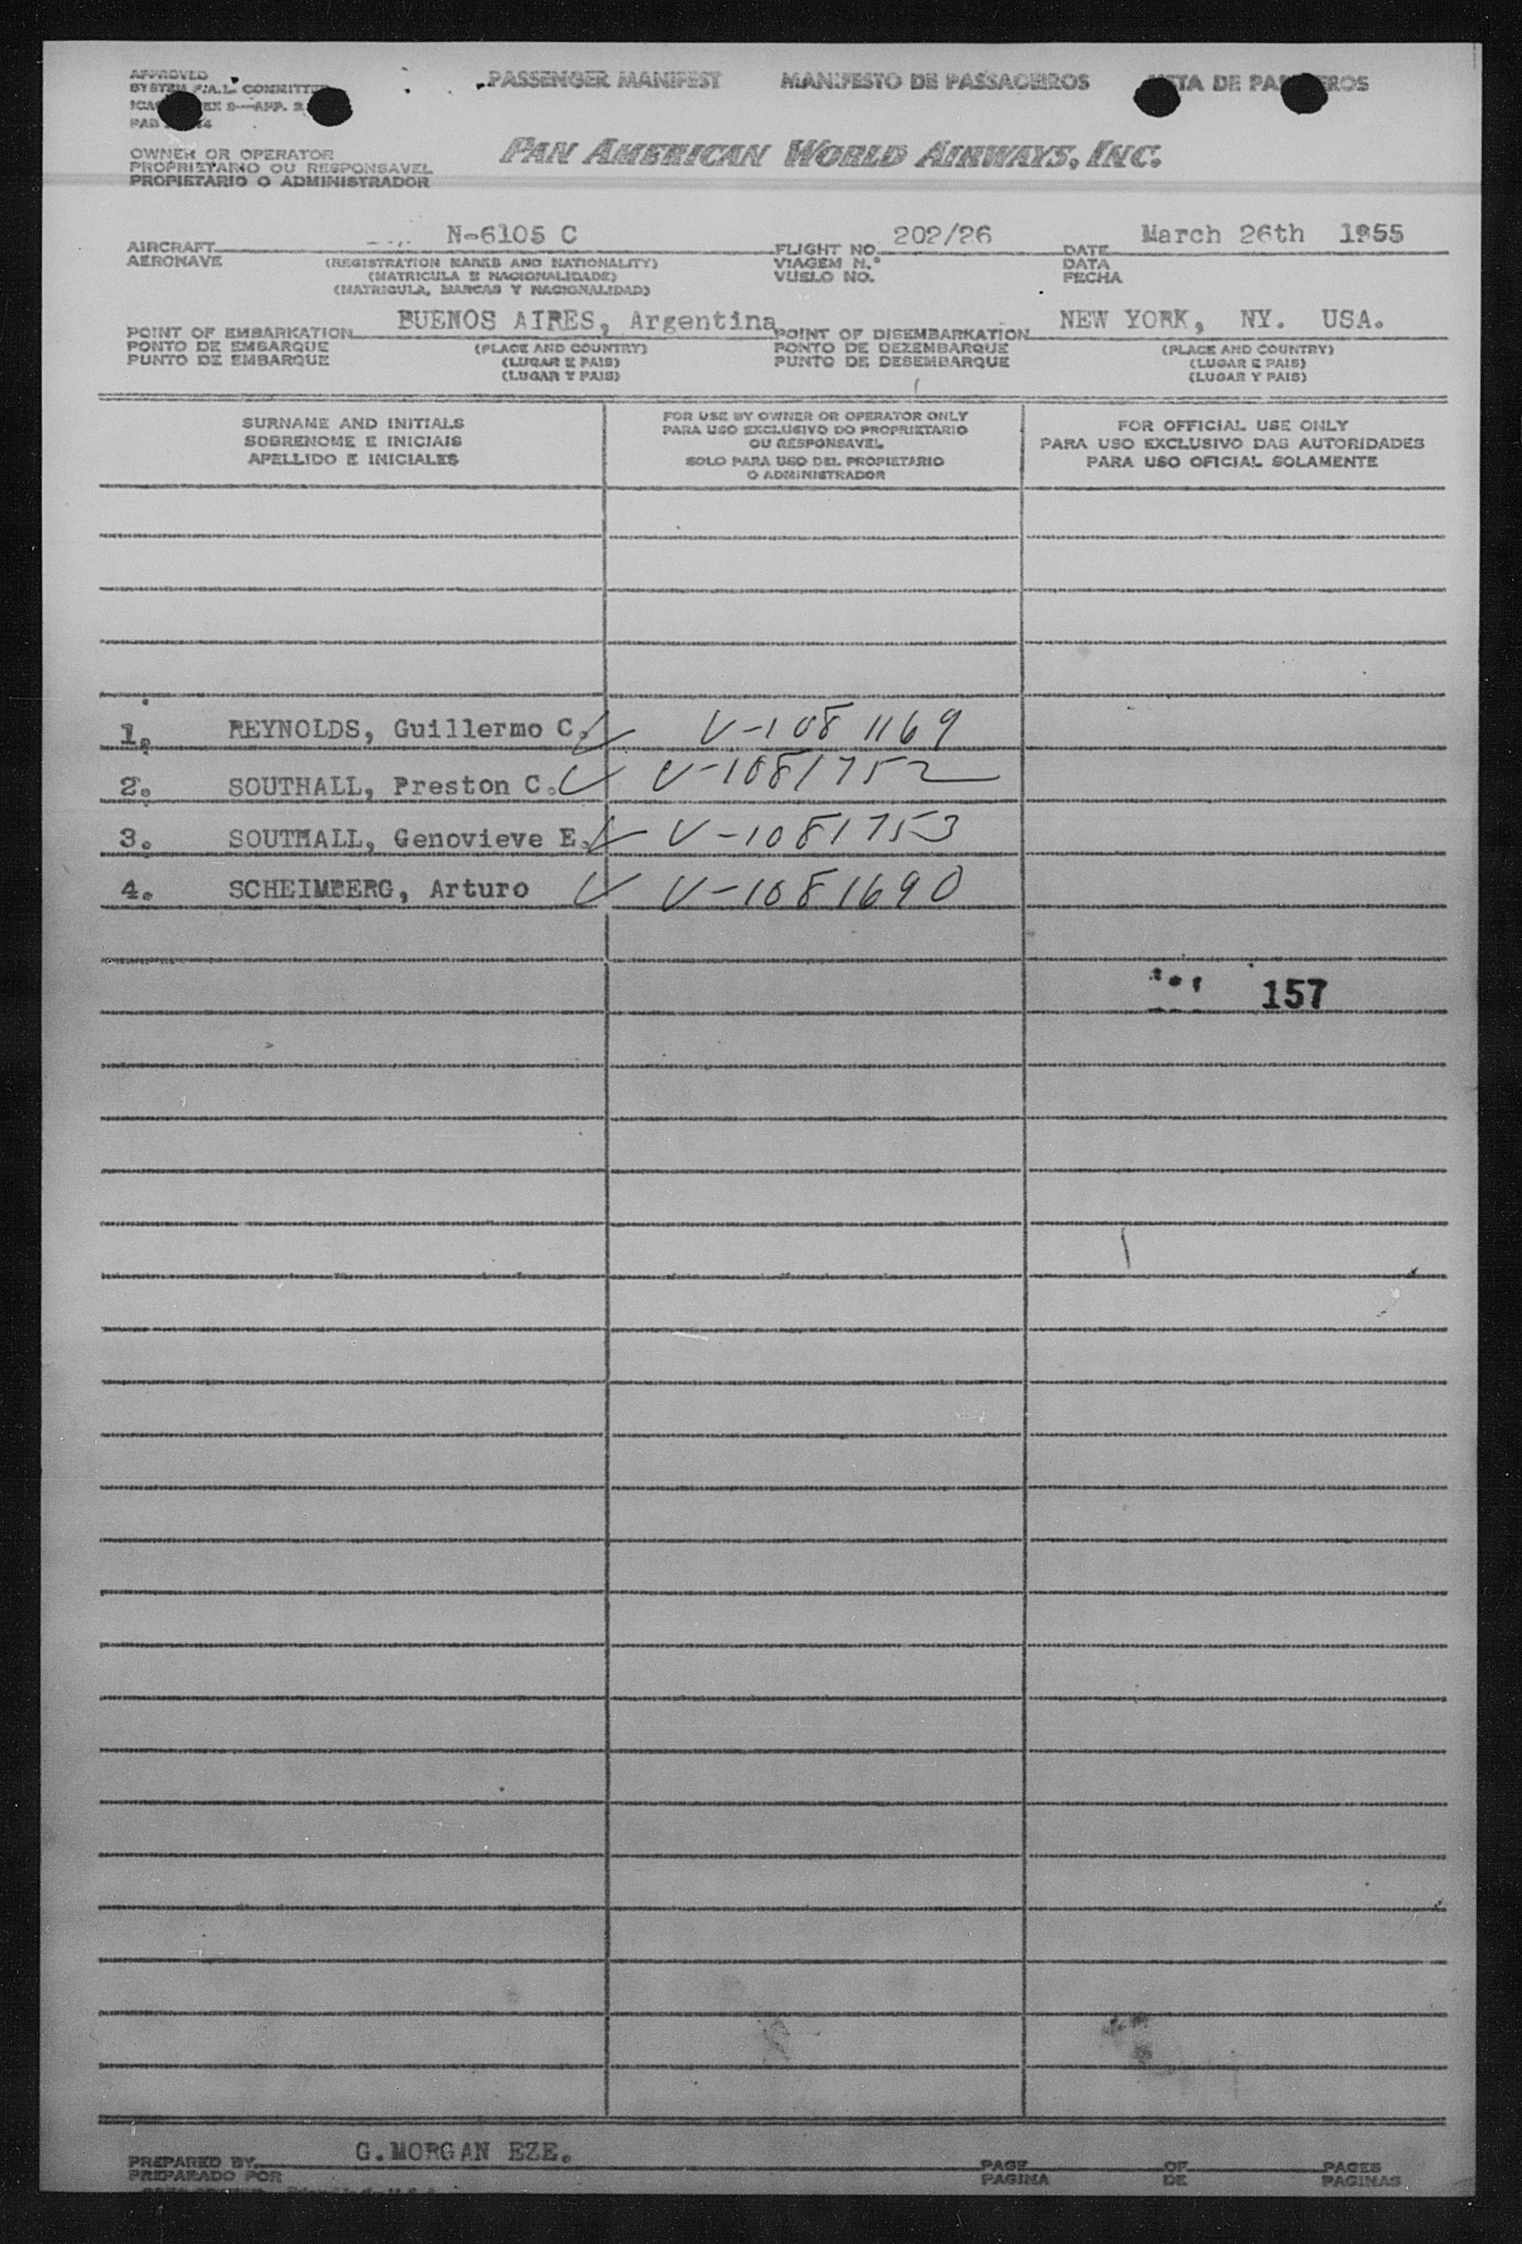 APPROVED
SYSTEM F.A.L. COMMITTEE
PASSENGER MANIFEST MANIFESTO DE PASSAGEIROS LISTA DE PASAJEROS
PAN AMERICAN WORLD AIRWAYS, INC.
OWNER OR OPERATOR
PROPRIETARIO OU RESPONSAVEL
PROPIETARIO O ADMINISTRADOR
AIRCRAFT N-6105 C FLIGHT NO. 202/26 DATE March 26th 1955
AERONAVE (REGISTRATION MARKS AND NATIONALITY) VIAGEM N.° DATA
(MATRICULA E NACIONALIDADE) VUELO NO. FECHA
(MATRICULA, MARCAS Y NACIONALIDAD)
POINT OF EMBARKATION BUENOS AIRES, Argentina POINT OF DISEMBARKATION NEW YORK, NY. USA.
PONTO DE EMBARQUE (PLACE AND COUNTRY) PONTO DE DEZEMBARQUE (PLACE AND COUNTRY)
PUNTO DE EMBARQUE (LUGAR E PAIS) PUNTO DE DESEMBARQUE (LUGAR E PAIS)
(LUGAR Y PAIS) (LUGAR Y PAIS)
SURNAME AND INITIALS
SOBRENOME E INICIAIS
APELLIDO E INICIALES
FOR USE BY OWNER OR OPERATOR ONLY
PARA USO EXCLUSIVO DO PROPRIETARIO
OU RESPONSAVEL
SOLO PARA USO DEL PROPIETARIO
O ADMINISTRADOR
FOR OFFICIAL USE ONLY
PARA USO EXCLUSIVO DAS AUTORIDADES
PARA USO OFICIAL SOLAMENTE
1. REYNOLDS, Guillermo C. V-1081169
2. SOUTHALL, Preston C. V-1081752
3. SOUTHALL, Genovieve E. V-1081753
4. SCHEIMBERG, Arturo V-1081690
157
PREPARED BY G.MORGAN EZE. PAGE OF PAGES
PREPARADO POR PAGINA DE PAGINAS